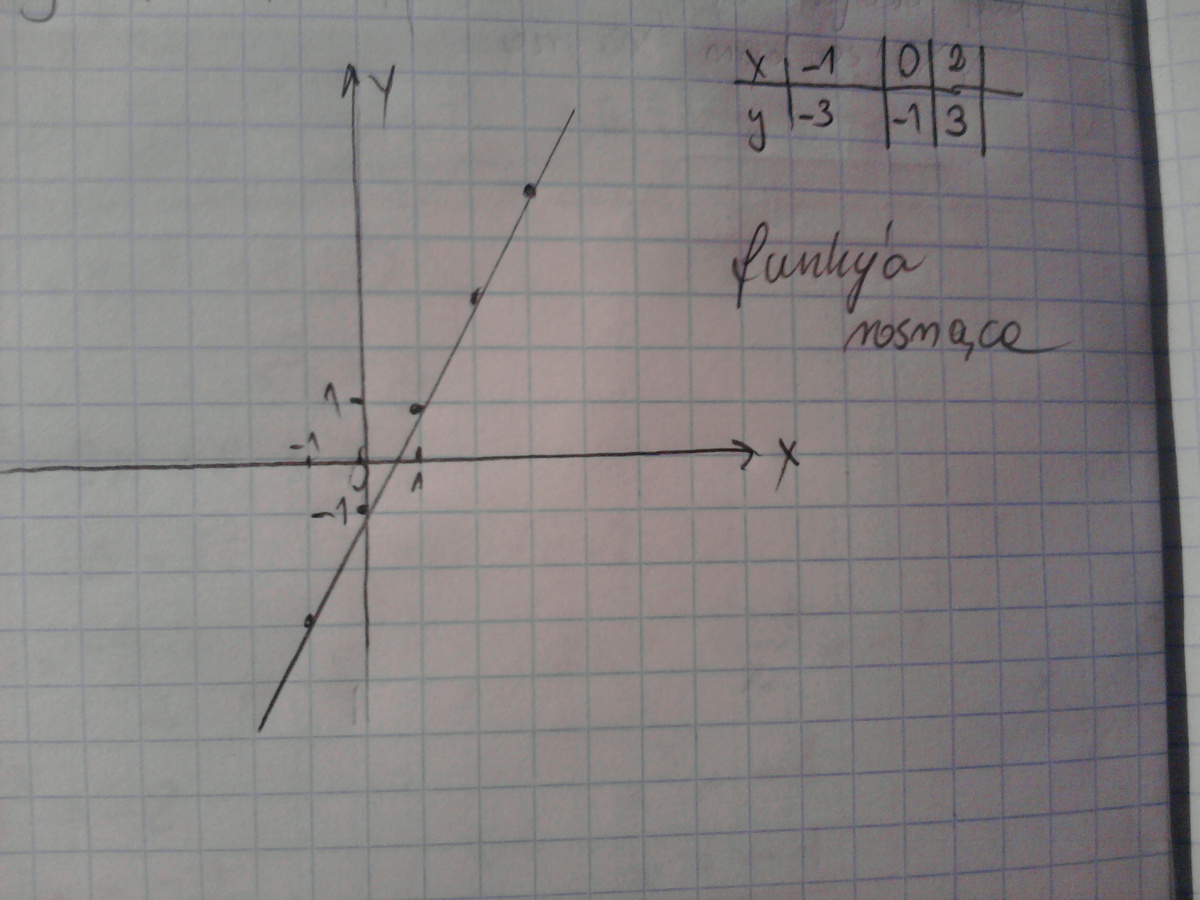 Y
x -1 0 2
y -3 -1 3
funkcja
rosnąca
1
-1 0 1 X
-1